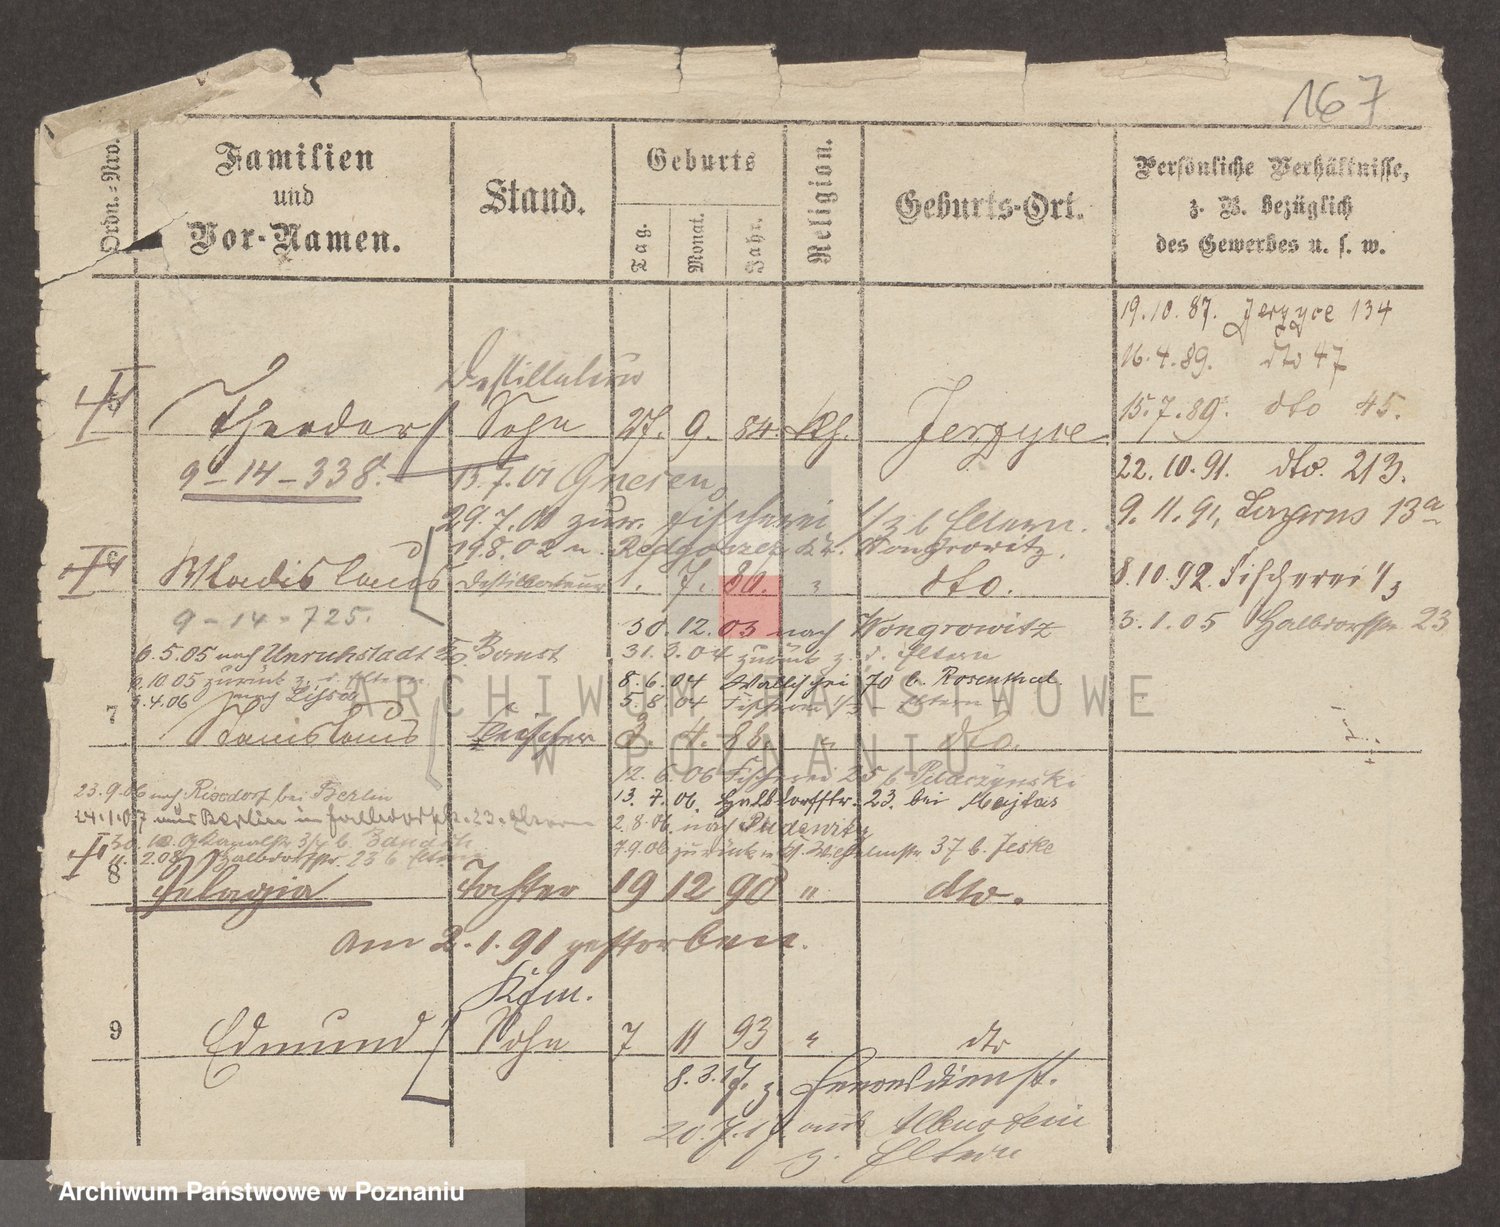 167
Ordn.-Nro.
Familien
und
Vor-Namen.
Stand.
Geburts
Tag.
Monat.
Jahr.
Religion.
Geburts-Ort.
Persönliche Verhältnisse,
z. B. bezüglich
des Gewerbes u. s. w.
19.10.87. Jerzyce 134
16.4.89. dto 47
15.7.89. dto 45.
22.10.91. dto. 213.
9.11.91, Lazarus 13a
8.10.92. Fischerei 1/3
3.1.05 Halbdorfstr. 23
Destillateur
Theodor Sohn 27. 9. 84. Kth. Jerzyce
9-14-338. 13.7.01 Gnesen
29.7.01 zur. Fischerei 1/3 b Eltern.
19.8.02 n. Kr. Wongrowitz.
Wladislaus Destillateur 1. 7. 86. " dto.
9-14-725.
30.12.03 nach Wongrowitz
6.5.05 nach Unruhstadt Bomst
31.3.04 zurück z. d. Eltern
8.6.04 Wallischei 70 b. Rosenthal
5.8.04 Fischerei 1/3 Eltern
2.10.05 zurück z. d. Eltern
3.4.06 nach Lissa
7
Stanislaus Fleischer 3. 4. 88 " dto.
12.6.06 Fischerei 25 b
13.7.06. Halbdorfstr. 23. bei Majtas
2.8.06 nach Pudewitz
7.9.06 zurück n. 37 b. Jeske
23.9.06 nach bei Berlin
24.1.07 aus Berlin Halbdorfstr. 23. Eltern
11.2.08 Halbdorfstr. 23 b Eltern
8 Pelagia Tochter 19 12 90 " dto.
am 2.1.91 gestorben.
Kfm.
9 Edmund Sohn 7 11 93 " dto
8.3.17. z. Heeresdienst.
20.7.17 aus Allenstein
z. Eltern
ARCHIWUM PAŃSTWOWE
W POZNANIU
Archiwum Państwowe w Poznaniu